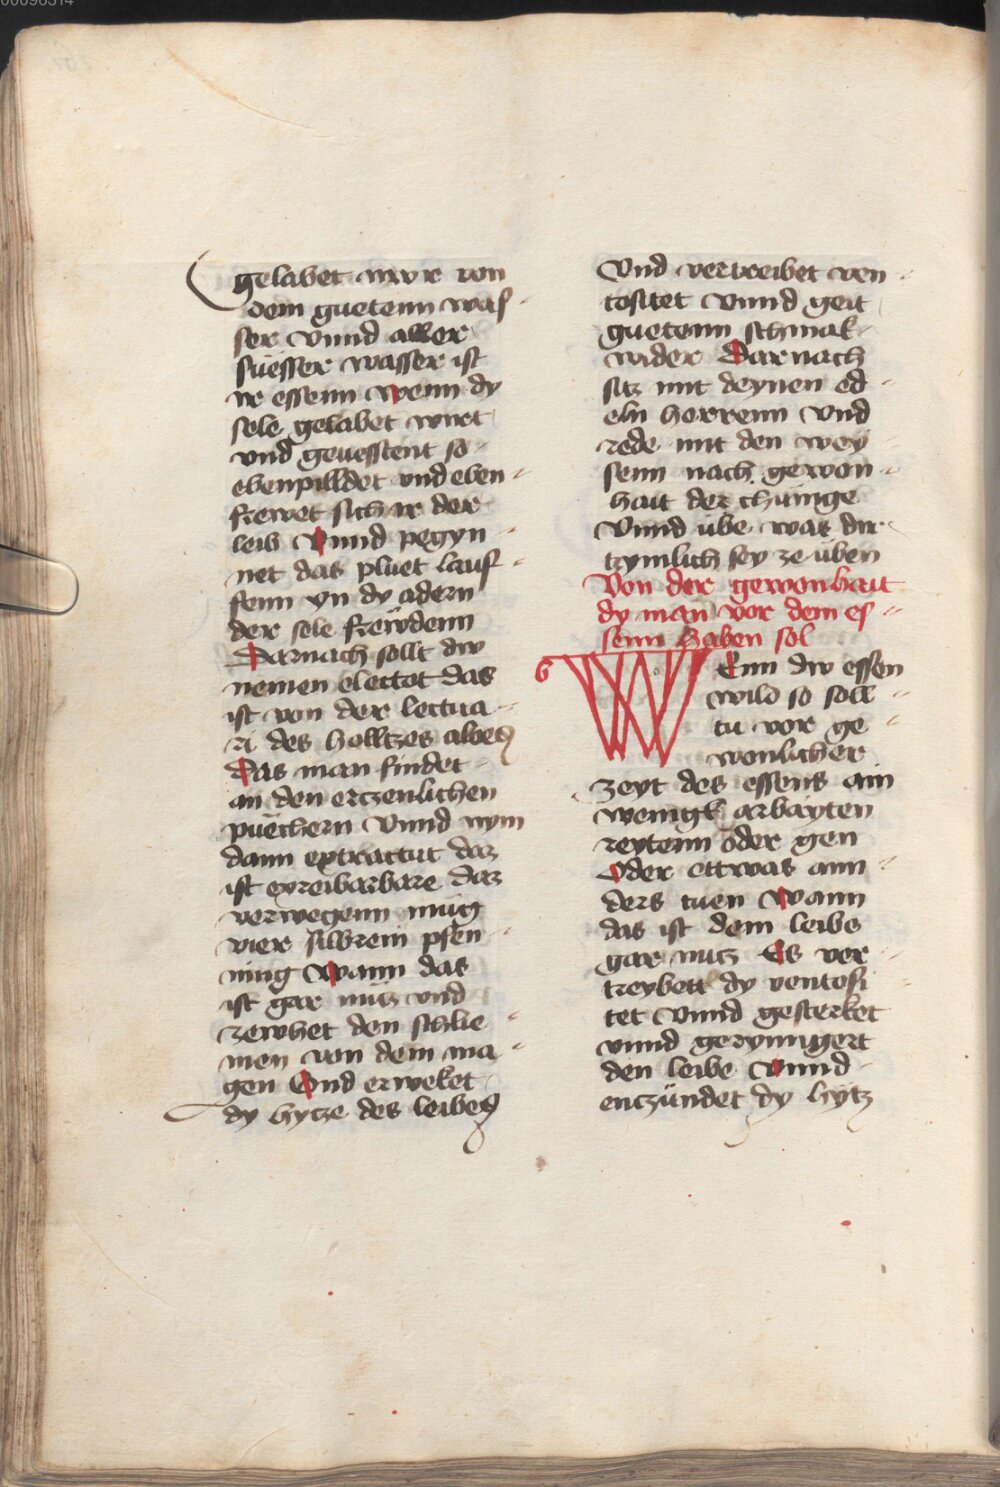 gelabet wwr von
dem guetenn was
ser vnnd aller
süesser wasser ist
ir essenn wenn dy
sele gelabet wirt
vnd geuesstent so
ebenpilldet vnd eben
frewet sich ir der
leib Vnnd pegyn
net das pluet lauf
fenn yn dy adern
der sele frewdenn
Darnach sollt dw
nemen electot das
ist von der lectua
ri des holltzes aloes
Das man findet
an den erczenlichen
puechern Vnnd nym
dann extractut daz
ist eyreibarbare daz
verwegenn müg
vier silbrein pfen
ning Wann das
ist gar nütz vnd
zewhet den schlie
men von dem ma
gen Vnd erweket
dy hytze des leibes
Vnd vertreibet ven
tositet Vnnd geit
guetenn schmak
wider Darnach
sitz mit deynen ed
eln herrenn Vnd
rede mit den wey
senn nach gewon
hait der chünige
Vnnd übe was dir
tzymlich sey ze üben
Von der gewonhait
dy man vor dem es
senn haben sol
6 WEnn dw essen
wild so soll
tu vor ge
wonlicher
zeyt des essens ain
wenigk arbayten
reytenn oder gen
Oder ettwas ann
ders tuen Wann
das ist dem leibe
gar nutz Es ver
treybett dy ventosi
tet Vnnd gesterket
vnnd geryngert
den leibe Vnnd
enczündet dy hytz